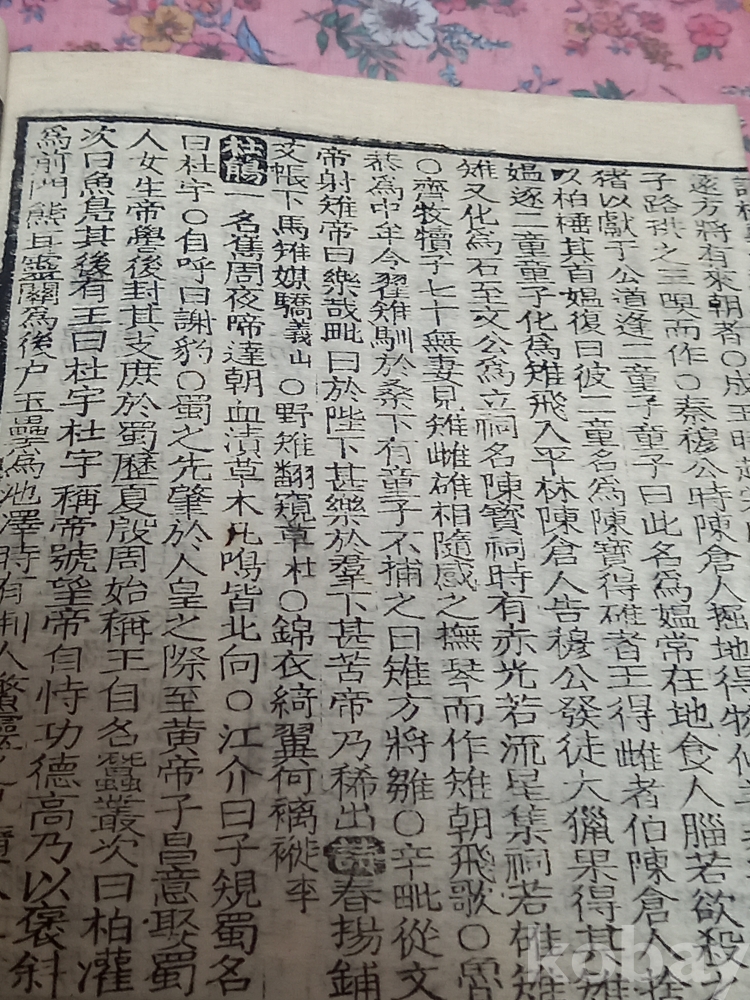 遠方將有來朝者○成王時
子路拱之三嗅而作○秦穆公時陳倉人掘地得物
猪以獻于公道逢二童子童子曰此名爲媼常在地食人腦若欲殺之
以柏棰其首媼復曰彼二童名爲陳寶得雄者王得雌者伯陳倉人捨
媼逐二童童子化爲雉飛入平林陳倉人告穆公發徒大獵果得其雌
雉又化爲石至文公爲立祠名陳寶祠時有赤光若流星集祠若雄雉
○齊牧犢子七十無妻見雉雌雄相隨感之撫琴而作雉朝飛歌○魯
恭爲中牟令翟雉馴於桑下有童子不捕之曰雉方將雛○辛毗從文
帝射雉帝曰樂哉毗曰於陛下甚樂於羣下甚苦帝乃稀出 春揚鋪
艾帳下馬雉媒驕義山○野雉翻窺草杜○錦衣綺翼何褵褷李
杜鵑一名嶲周夜啼達朝血漬草木凡鳴皆北向○江介曰子規蜀名
曰杜宇○自呼曰謝豹○蜀之先肇於人皇之際至黄帝子昌意娶蜀
人女生帝嚳後封其支庶於蜀歷夏殷周始稱王自名蠶叢次曰柏灌
次曰魚鳧其後有王曰杜宇杜宇稱帝號望帝自恃功德高乃以褒斜
爲前門熊耳靈關爲後户玉壘爲池澤時有荆人鱉靈
kobay